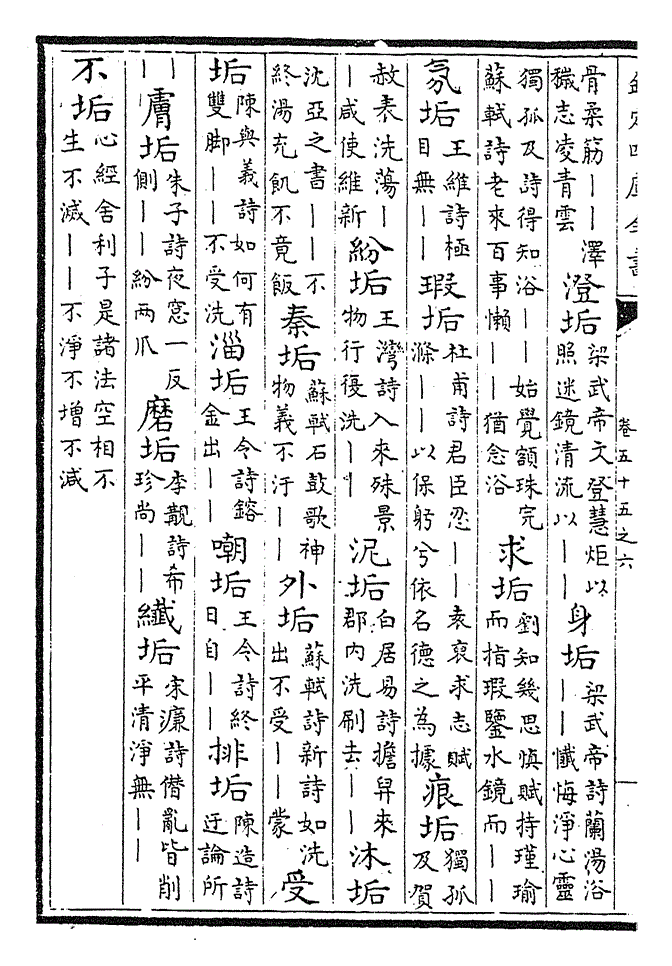 欽定四庫全書 卷五十五之六
骨柔筋｜｜澤穢志凌青雲 澄垢 梁武帝文登慧炬以照迷鏡清流以｜｜ 身垢 梁武帝詩蘭湯浴｜｜懺悔淨心靈
獨孤及詩得知浴｜｜始覺額珠完蘇軾詩老來百事懶｜｜猶念浴 求垢 劉知幾思慎賦持瑾瑜而指瑕鑒水鏡而｜｜
氛垢 王維詩極目無｜｜ 瑕垢 杜甫詩君臣忍｜｜袁裒求志賦滌｜｜以保躬兮依名德之為據 痕垢 獨孤及賀
赦表洗蕩｜｜咸使維新 紛垢 王灣詩入來殊景物行復洗｜｜ 泥垢 白居易詩擔舁來郡內洗刷去｜｜ 沐垢
沈亞之書｜｜不終湯充飢不竟飯 秦垢 蘇軾石鼓歌神物義不汙｜｜ 外垢 蘇軾詩新詩如洗出不受｜｜蒙 受
垢 陳與義詩如何有雙脚｜｜不受洗 淄垢 王令詩鎔金出｜｜ 嘲垢 王令詩終日自｜｜ 排垢 陳造詩迂論所
｜｜ 膚垢 朱子詩夜窓一反側｜｜紛兩爪 磨垢 李覯詩希珍尚｜｜ 纖垢 宋濂詩僭亂皆削平清淨無｜｜
不垢 心經舍利子是諸法空相不生不滅｜｜不淨不增不減